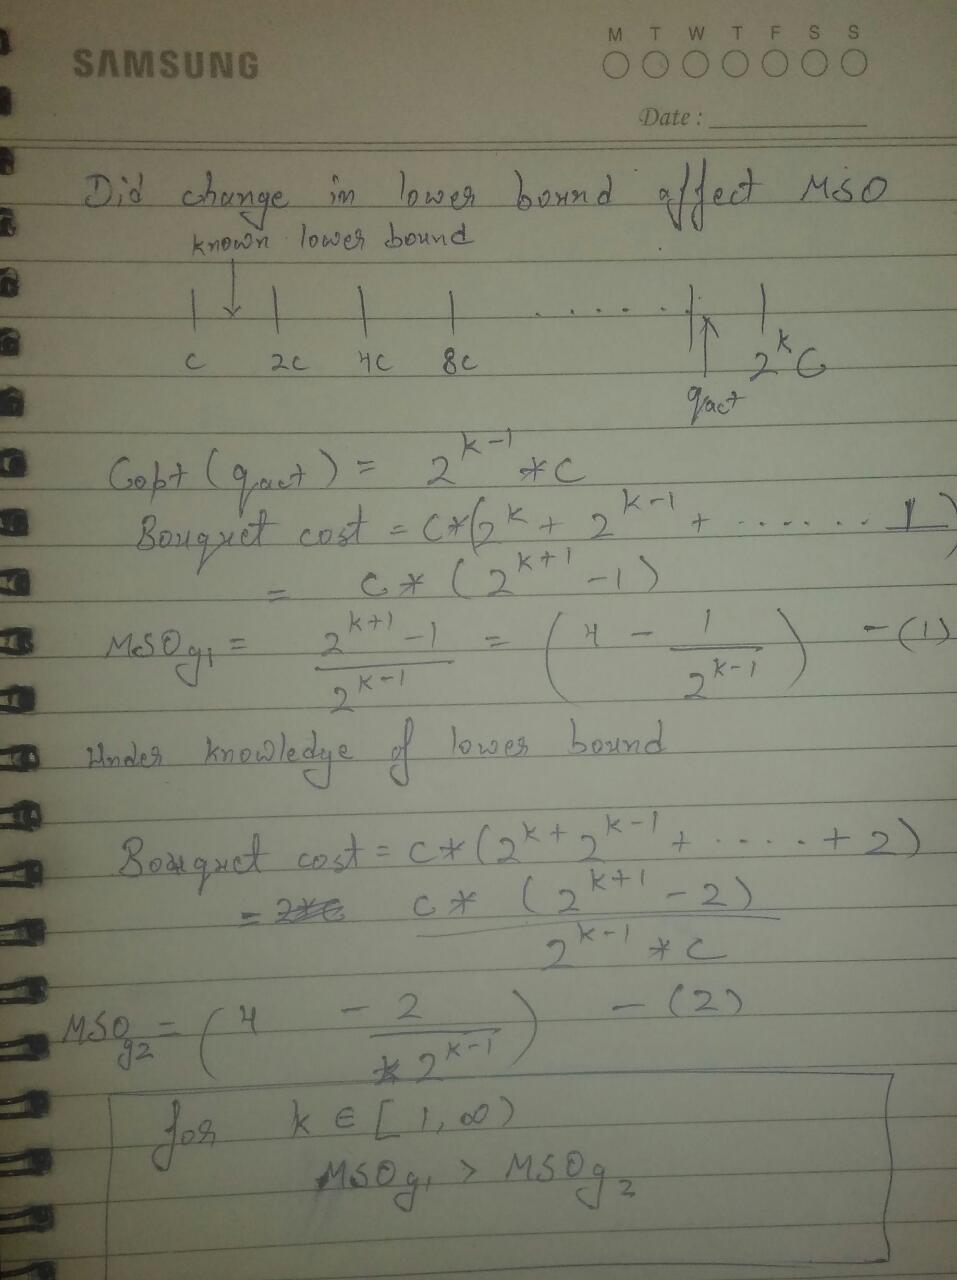 SAMSUNG
M T W T F S S
Date :
Did change in lower bound affect MSO
known lower bound
C 2C 4C 8C ...... 2^k C
qact
Copt (qact) = 2^{k-1} * C
Bouquet cost = C*(2^k + 2^{k-1} + ....... 1)
= C * (2^{k+1} - 1)
MSO_{g1} = \frac{2^{k+1} - 1}{2^{k-1}} = (4 - \frac{1}{2^{k-1}}) - (1)
Under knowledge of lower bound
Bouquet cost = C*(2^k + 2^{k-1} + ..... + 2)
= \frac{C * (2^{k+1} - 2)}{2^{k-1} * C}
MSO_{g2} = (4 - \frac{2}{2^{k-1}}) - (2)
for k ∈ [1, ∞)
MSO_{g1} > MSO_{g2}